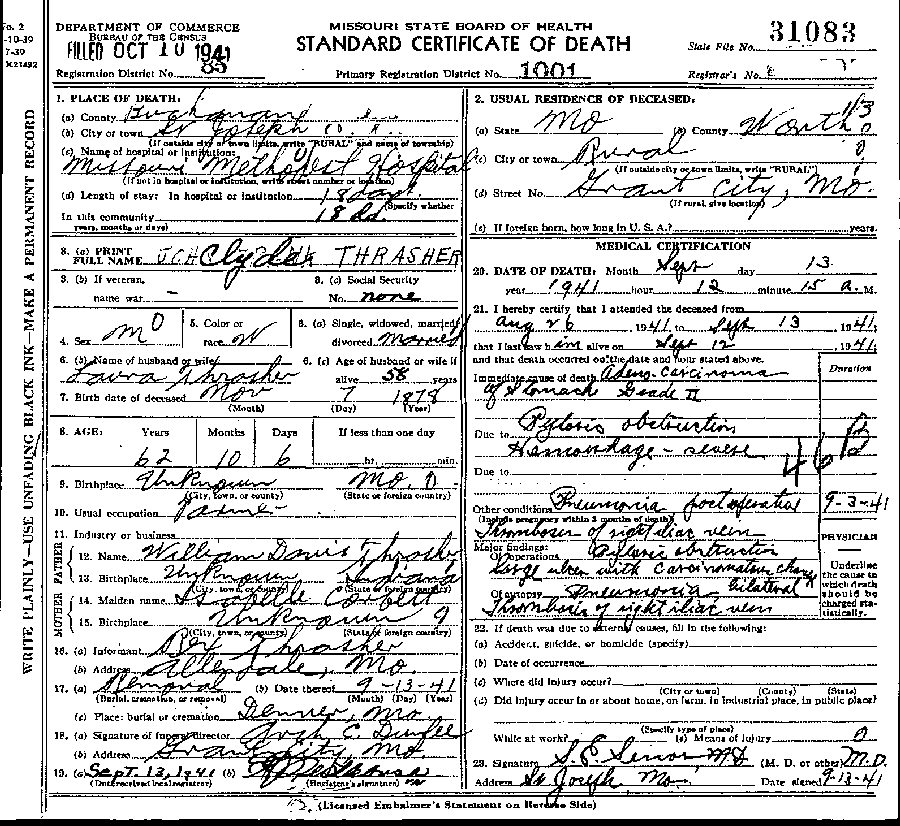 No. 2
-10-39
7-39
X21492
WRITE PLAINLY—USE UNFADING BLACK INK—MAKE A PERMANENT RECORD
DEPARTMENT OF COMMERCE
BUREAU OF THE CENSUS
FILED OCT 10 1941
Registration District No. 85
MISSOURI STATE BOARD OF HEALTH
STANDARD CERTIFICATE OF DEATH
Primary Registration District No. 1001
State File No. 31083
Registrar's No.
1. PLACE OF DEATH:
(a) County Buchanan
(b) City or town St Joseph
(If outside city or town limits, write "RURAL" and name of township)
(c) Name of hospital or institution:
Missouri Methodist Hospital
(If not in hospital or institution, write street number or location)
(d) Length of stay: In hospital or institution 18 days
(Specify whether
In this community 18 da
years, months or days)
3. (a) PRINT
FULL NAME Clyde THRASHER
3. (b) If veteran,
name war -
3. (c) Social Security
No. none
4. Sex M
5. Color or
race W
6. (a) Single, widowed, married,
divorced Married
6. (b) Name of husband or wife
Laura Thrasher
6. (c) Age of husband or wife if
alive 58 years
7. Birth date of deceased Nov 7 1878
(Month) (Day) (Year)
8. AGE: Years Months Days If less than one day
62 10 6 hr. min.
9. Birthplace Unknown Mo. 0
(City, town, or county) (State or foreign country)
10. Usual occupation Farmer
11. Industry or business
FATHER
12. Name William Davis Thrasher
13. Birthplace Unknown Indiana
(City, town, or county) (State or foreign country)
MOTHER
14. Maiden name Corbett
15. Birthplace Unknown 9
(City, town, or county) (State or foreign country)
16. (a) Informant Rex Thrasher
(b) Address Allendale, Mo.
17. (a) Removal (b) Date thereof 9-13-41
(Burial, cremation, or removal) (Month) (Day) (Year)
(c) Place: burial or cremation Denver, Mo
18. (a) Signature of funeral director Arch C. Dunfee
(b) Address Grant City Mo.
19. (a) Sept. 13, 1941 (b)
(Date received local registrar) (Registrar's signature)
2. USUAL RESIDENCE OF DECEASED: 113
(a) State Mo (b) County Worth 0
(c) City or town Rural 0
(If outside city or town limits, write "RURAL")
(d) Street No. Grant City, Mo.
(If rural, give location)
(e) If foreign born, how long in U. S. A.? years.
MEDICAL CERTIFICATION
20. DATE OF DEATH: Month Sept day 13
year 1941 hour 12 minute 15 a. M.
21. I hereby certify that I attended the deceased from
Aug 26, 1941 to Sept 13 1941,
that I last saw him alive on Sept 12, 1941,
and that death occurred on the date and hour stated above.
Duration
Immediate cause of death Adeno-Carcinoma
of Stomach Grade II
Due to Pyloric obstruction
Hemorrhage - severe
46b
Due to
Other conditions Pneumonia postoperative 9-3-41
(Include pregnancy within 3 months of death)
Thrombosis of right iliac vein
PHYSICIAN
Major findings:
Of operations Pyloric obstruction
Large ulcer with Carcinomatous change
Of autopsy Pneumonia bilateral
Thrombosis of right iliac vein
Underline
the cause to
which death
should be
charged sta-
tistically.
22. If death was due to external causes, fill in the following:
(a) Accident, suicide, or homicide (specify)
(b) Date of occurrence
(c) Where did injury occur?
(City or town) (County) (State)
(d) Did injury occur in or about home, on farm, in industrial place, in public place?
(Specify type of place)
While at work? (e) Means of injury 0
23. Signature S. E. Senor MD (M. D. or other) M.D.
Address St Joseph Mo. Date signed 9-13-41
(Licensed Embalmer's Statement on Reverse Side)